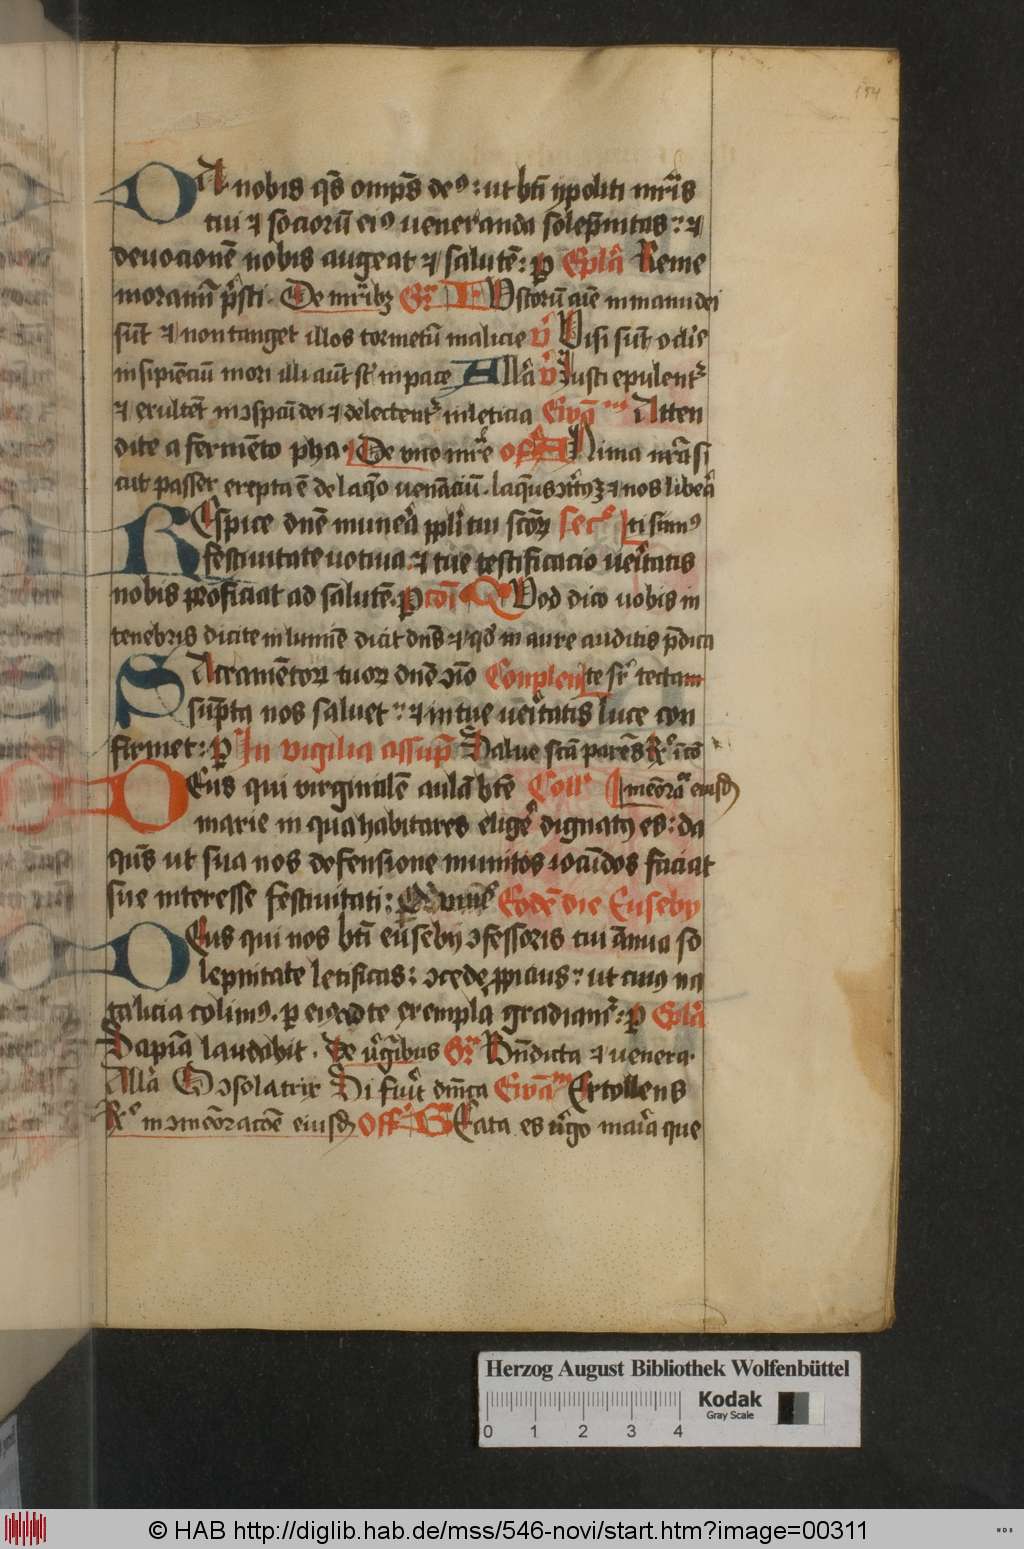 154
DA nobis qs̄ omp̄s de9: ut bt̄i ypoliti mr̄is
tui ⁊ socioru̅ ei9 ueneranda solep̄nitas: ⁊
deuocione̅ nobis augeat ⁊ salute̅: p Epl̄a Reme
moramı̅ p̄sti. De mr̄ibꝫ Gr̄ IVstoru̅ aīe in manu dei
su̅t ⁊ non tanget illos tormetu̅ malicie v̄ Visi su̅t oclīs
insipie̅ciu̅ mori illi au̅t st̄ in pace Allā v̄ Justi epulent̄
⁊ exulte̅t in ɔspc̄u dei ⁊ delectent̄ in leticia Ewā Atten
dite a ferme̅to pha. De vno mr̄e Off ANima nr̄a si
cut passer erepta e̅ de laq̊o uena̅ciu̅. laque9 ⁊ nos liberā
REspice dn̄e munera ppl̄i tui sc̄oꝝ Secr̄
festiuitate uotiua: ⁊ tue testificacio ueritatis
nobis proficiat ad salute̅. p Co̅i QVod dico uobis in
tenebris dicite in lumīe dicit dn̄s ⁊ qd̄ in aure auditis p̄dica
SAcrame̅toꝝ tuoꝝ dn̄e ɔīo Conplen te sr̄ tectam
su̅pta nos saluet: ⁊ in tue ueritatis luce con
firmet: p In vigilia assup̄ Salue sc̄a pare̅s
DEus qui virginale̅ aula̅ bt̄e Coll̄
marie in qua habitares elige̅ dignat9 es: da
qs̄ ut sua nos defensione munitos iocu̅dos faciat
sue interesse festiuitati: Eode̅ die Euseby
DEus qui nos bt̄i euseby ɔfessoris tui a̅nua so
lepnitate letificas: ɔcede ppicius: ut cui9 na
talicia colim9. p ei9 ad te exempla gradiam̄: p Epl̄a
Sapi̅a laudabit. De v̄gi̅ibus Gr̄ Bn̄dicta ⁊ venera.
Allā Ɔsolatrix Si fūit dm̄ca Ewā Extollens
R̄ in ɔmeōracoe̅ eiusd̄ Off̄ BEata es v̄go maria que
Herzog August Bibliothek Wolfenbüttel
Kodak
Gray Scale
0 1 2 3 4
© HAB http://diglib.hab.de/mss/546-novi/start.htm?image=00311